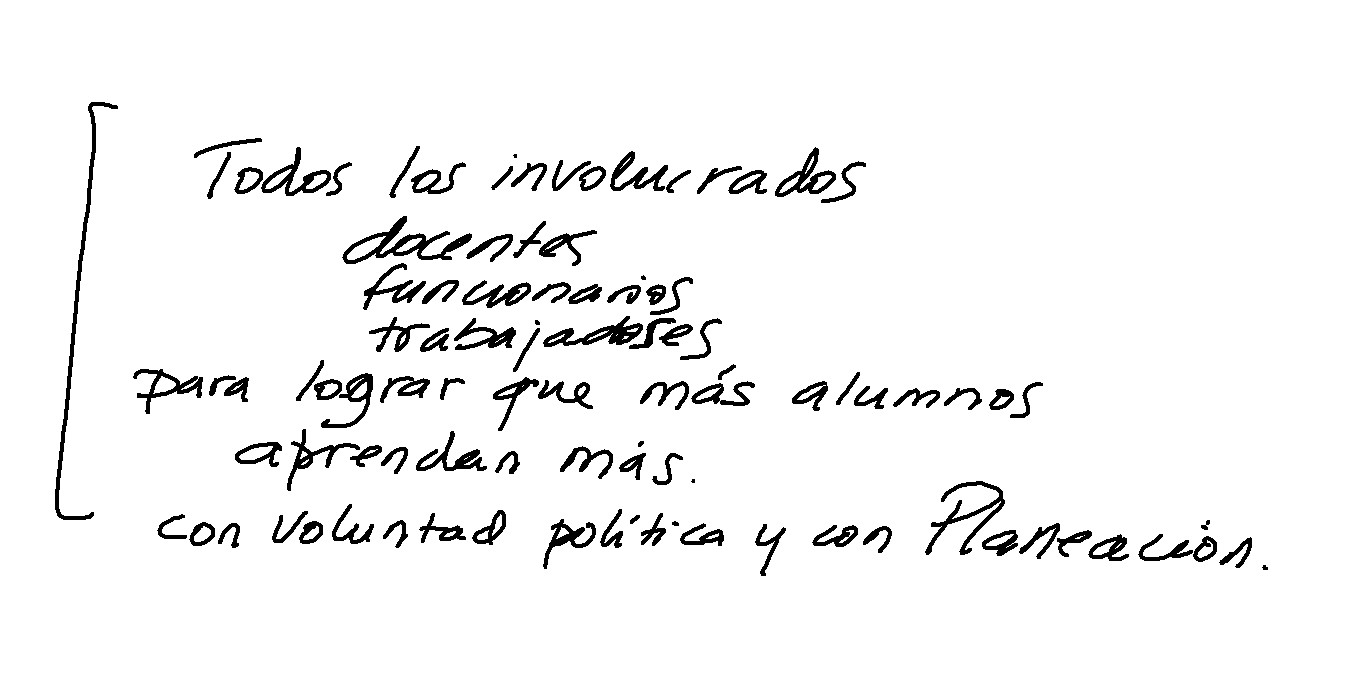 Todos los involucrados
docentes
funcionarios
trabajadores
para lograr que más alumnos
aprendan más.
con voluntad política y con Planeación.